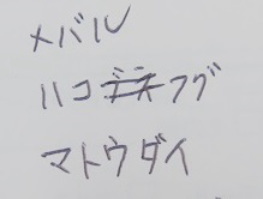 メバル
ハコフグ
マトウダイ